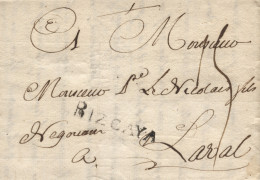 A Monsieur
Monsieur Le Nicolais fils
BIZCAYA
Negociant
A. Laval